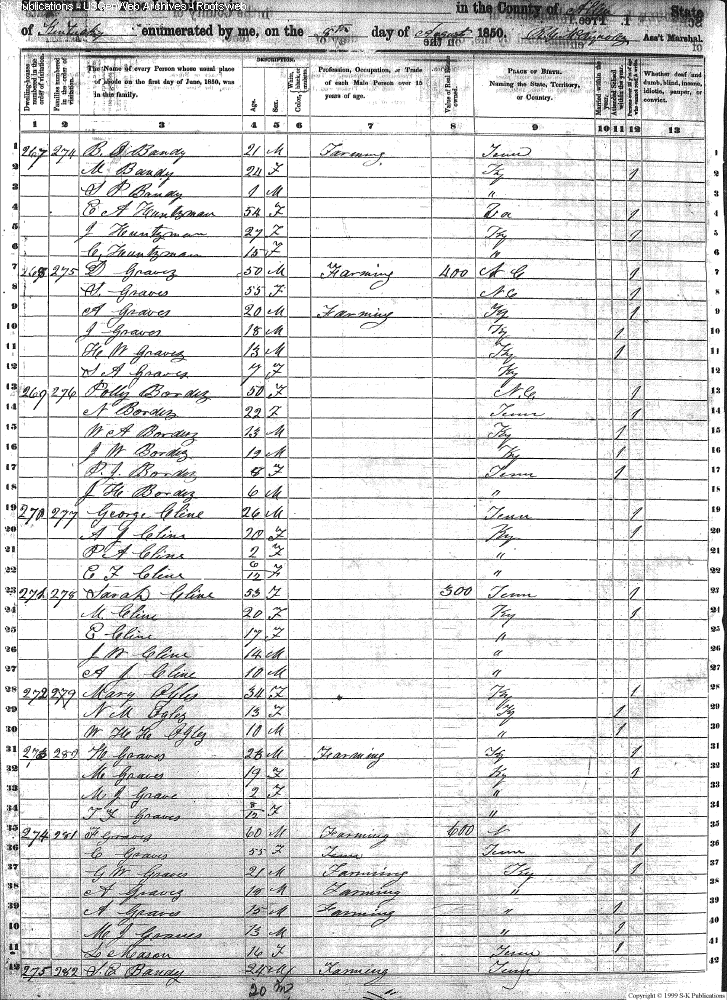 Publications - USGenWeb Archives - Rootsweb
in the County of Allen State
of Kentucky enumerated by me, on the 5th day of August 1850. Ass't Marshal.
DESCRIPTION.
Dwelling-houses numbered in the order of visitation.
Families numbered in the order of visitation.
The Name of every Person whose usual place of abode on the first day of June, 1850, was in this family.
Age.
Sex.
White, black, or mulatto. Color
Profession, Occupation, or Trade of each Male Person over 15 years of age.
Value of Real Estate owned.
PLACE OF BIRTH. Naming the State, Territory, or Country.
Married within the year.
Attended School within the year.
Whether deaf and dumb, blind, insane, idiotic, pauper, or convict.
1 2 3 4 5 6 7 8 9 10 11 12 13
1 267 274 B. B Bandy 21 M Farming Tenn 1
2 M Bandy 24 F Ky 1 2
3 S P Bandy 1 M " 3
4 E A Huntzman 54 F 1 4
5 J Huntzman 27 F Ky 1 5
6 C, Huntzman 15 F " 6
7 268 275 D Graves 50 M Farming 400 N C 1 7
8 S. Graves 55 F N.C 1 8
9 A Graves 20 M Farming Ky 1 9
10 J Graves 18 M Ky 1 10
11 H W Graves 13 M Ky 1 11
12 S A Graves 7 F Ky 12
13 269 276 Polly Borders 50 F N.C. 1 13
14 N Borders 22 F Tenn 1 14
15 W A Borders 13 M Ky 1 15
16 J W Borders 12 M Ky 1 16
17 P. J. Borders F Tenn 1 17
18 J H Borders 6 M " 18
19 270 277 George Cline 26 M Tenn 1 19
20 A J Cline 20 F Ky 1 20
21 P A Cline 2 F " 21
22 E F Cline 6/12 F " 22
23 271 278 Sarah Cline 53 F 300 Tenn 1 23
24 M. Cline 20 F Ky 1 24
25 E Cline 17 F " 25
26 J W Cline 14 M " 26
27 A J Cline 10 M " 27
28 272 279 Mary Ogles 34 F " Ky 1 28
29 N M Ogles 13 F Ky 1 29
30 W H H Ogles 10 M " 1 30
31 273 280 H Graves 23 M Farming Ky 1 31
32 M Graves 19 F Ky 1 32
33 M J Grave 2 F " 33
34 T F Graves 8/12 F " 34
35 274 281 F Graves 60 M Farming 600 N 1 35
36 C Graves 55 F Tenn Tenn 1 36
37 G W Graves 21 M Farming Ky 1 37
38 A Graves 18 M Farming " 38
39 A Graves 15 M Farming " 1 39
40 M J Graves 13 M " 1 40
41 Mason 16 F Tenn 1 41
42 275 282 S. E Bandy 24 M Farming 42
20 M "
Copyright © 1999 S-K Publications